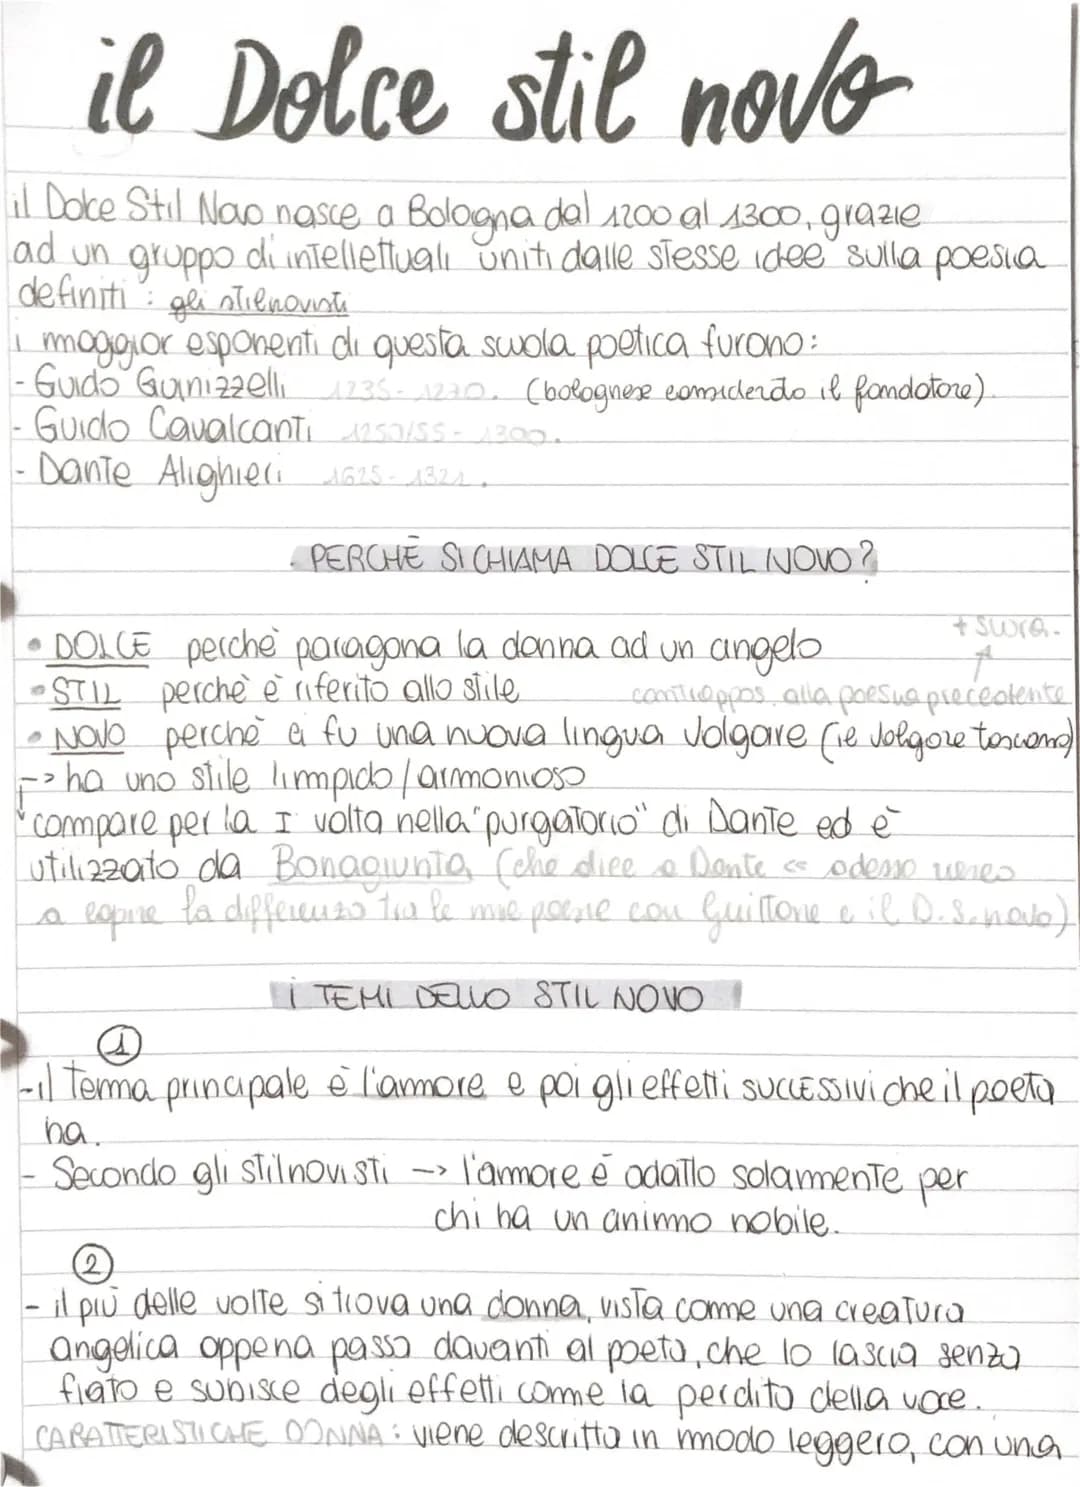 il Dolce stil novo
il Dolce Stil Novo nasce a Bologna dal 1200 al 1300, grazie
ad un gruppo di intellettuali uniti dalle stesse idee sulla poesia
definiti : gli stilnovisti
i maggior esponenti di questa scuola poetica furono:
- Guido Guinizzelli 1235-1270. (bolognese considerato il fondatore).
- Guido Cavalcanti 1250/55-1300.
- Dante Alighieri 1625-1321.
PERCHÈ SI CHIAMA DOLCE STIL NOVO?
+ scura.
• DOLCE perchè paragona la donna ad un angelo
• STIL perchè è riferito allo stile contrappos. alla poesia precedente
• NOVO perchè ci fu una nuova lingua volgare (il volgare toscano)
-> ha uno stile limpido/armonioso
compare per la I volta nella "purgatorio" di Dante ed è
utilizzato da Bonagiunta (che dice a Dante << adesso riesco
a capire la differenza tra le mie poesie con Guittone e il D.S.novo)
i TEMI DELLO STIL NOVO
1
-il Tema principale è l'amore e poi gli effetti successivi che il poeta
ha.
- Secondo gli stilnovisti -> l'amore è adatto solamente per
chi ha un animo nobile.
2
- il più delle volte si trova una donna, vista come una creatura
angelica appena passa davanti al poeta, che lo lascia senza
fiato e subisce degli effetti come la perdita della voce.
CARATTERISTICHE DONNA: viene descritta in modo leggero, con una